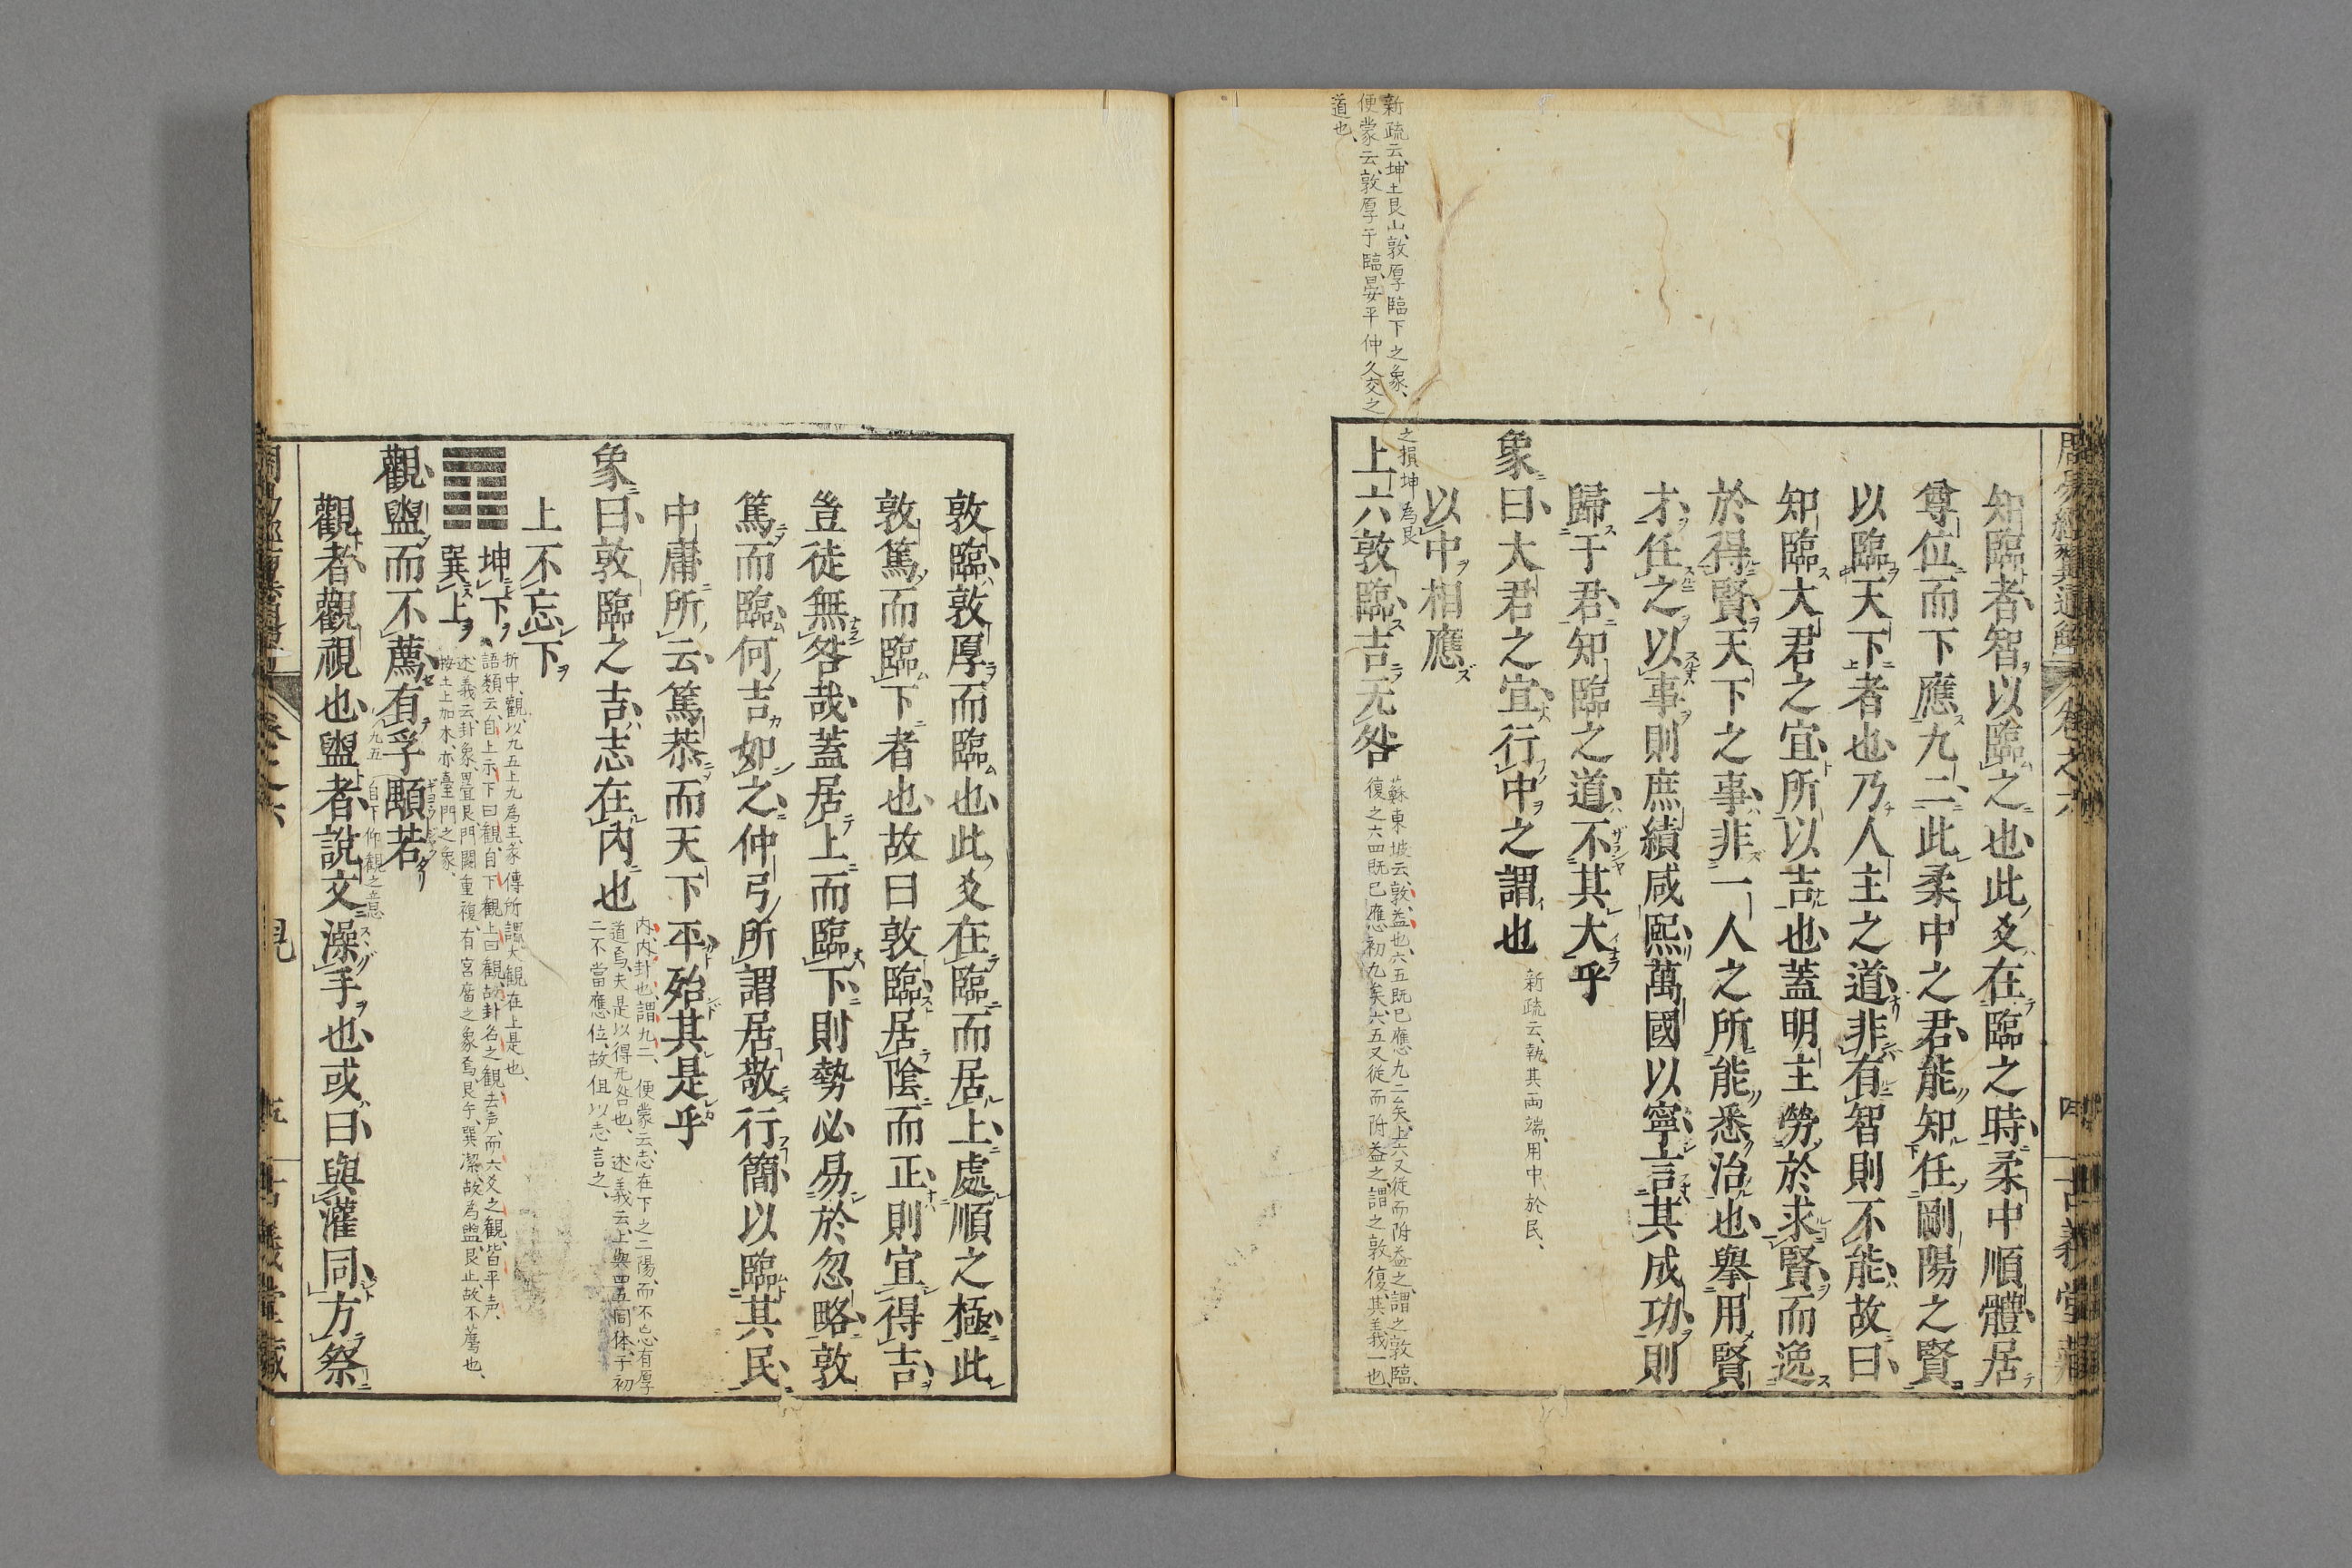 周易經翼通解 卷之六 四 古義堂藏
知臨者智以臨之也此爻在臨之時柔中順體居
尊位而下應九二此柔中之君能知任剛陽之賢
以臨天下者也乃人主之道非有智則不能故曰
知臨大君之宜所以吉也蓋明主勞於求賢而逸
於得賢天下之事非一人之所能悉治也舉用賢
才任之以事則庶績咸熙萬國以寧言其成功則
歸于君知臨之道不其大乎
象曰大君之宜行中之謂也
新疏云、執其両端、用中、於民、
以中相應
之損坤為艮
上六敦臨吉无咎
蘇東坡云、敦、益也、六五既已應九二矣、上六又従而附益之、謂之敦臨、
復之六四既已應初九矣、六五又従而附益之、謂之敦復、其義一也、
新疏云、坤土艮山、敦厚臨下之象、
便蒙云、敦厚于臨、晏平仲久交之
道也、
敦臨敦厚而臨也此爻在臨而居上處順之極此
敦篤而臨下者也故曰敦臨居陰而正則宜得吉
豈徒無咎哉蓋居上而臨下則勢必易於忽略敦
篤而臨何吉如之仲弓所謂居敬行簡以臨其民
中庸所云篤恭而天下平殆其是乎
象曰敦臨之吉志在內也
内、内卦也、謂九二、 便蒙云、志在下之二陽、而不忘、有厚
道焉、夫是以得无咎也、 述義云、上與四五同体、于初
二不當應位、故但以志言之、
上不忘下
坤下
巽上
折中、觀、以九五上九為主、彖傳所謂大観在上是也、
語類云、自上示下曰観、自下観上曰観、故卦名之観、去声、而六爻之観、皆平声、
述義云、卦象畳艮、門闕重複、有宮庿之象焉、艮手巽潔、故為盥、艮止、故不薦也、
按土上加木、亦臺門之象、
觀盥而不薦有孚顒若
九五 自下仰観之意思
觀者觀視也盥者說文澡手也或曰與灌同方祭